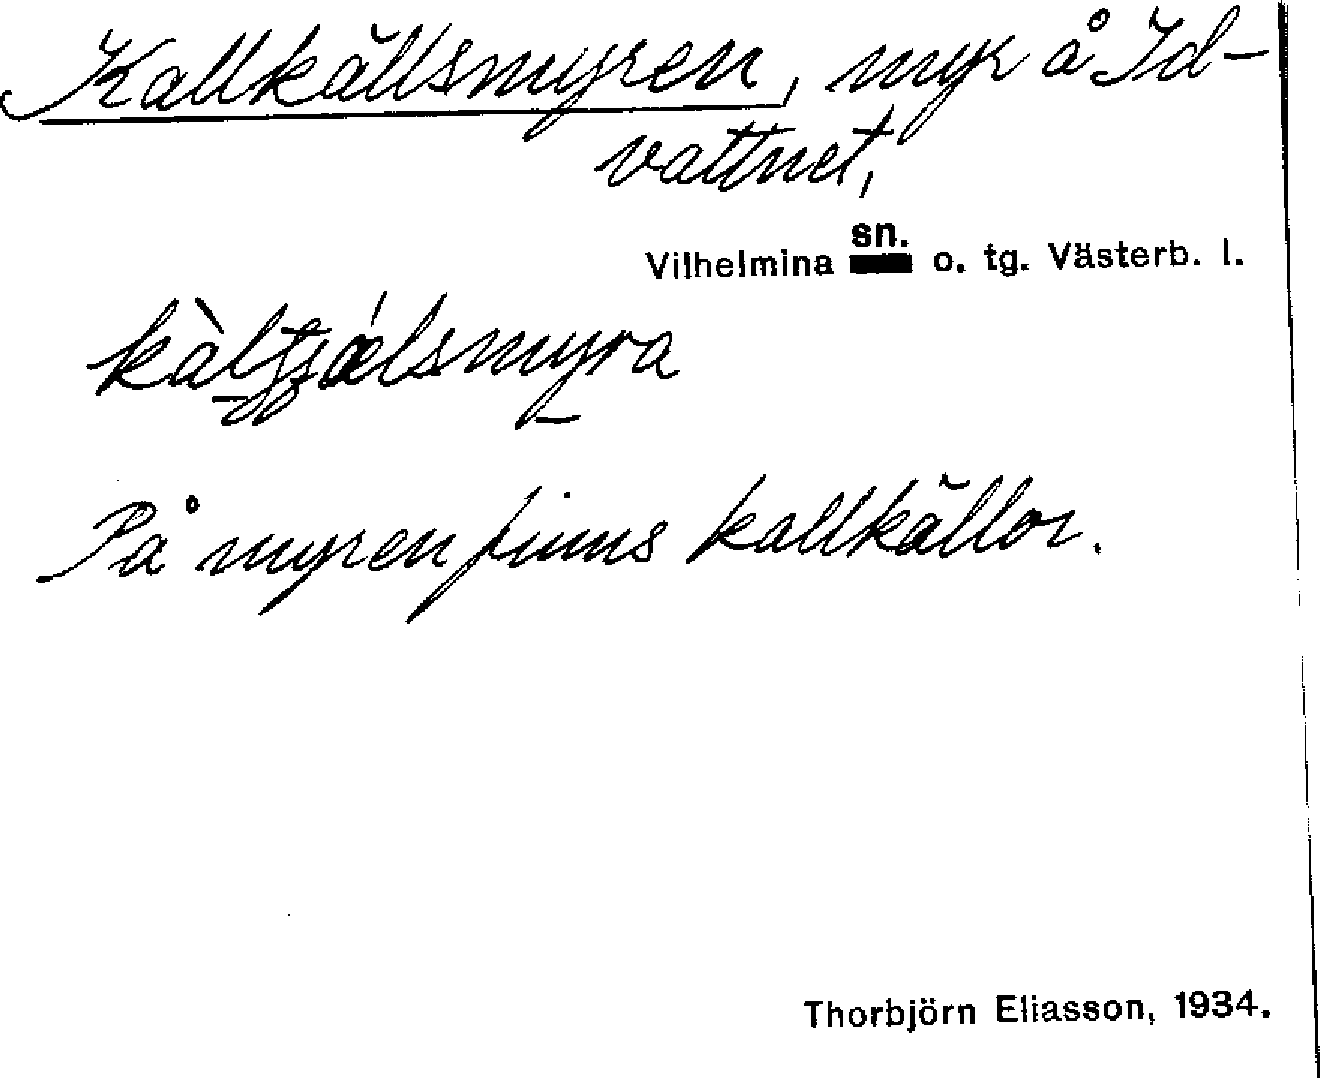 Kallkällsmyren, myr å Id-
vattnet,
Vilhelmina sn. o. tg. Västerb. l.
På myren finns kallkällor.
Thorbjörn Eliasson, 1934.